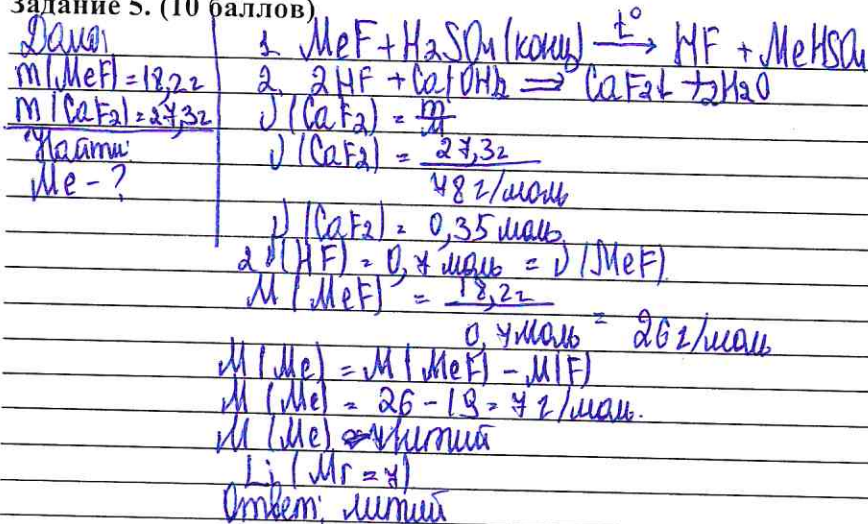 Задание 5. (10 баллов)
Дано:
m(MeF) = 18,2г
m(CaF2) = 27,3г
Найти:
Me - ?
1. MeF + H2SO4(конц) t°→ HF + MeHSO4
2. 2HF + Ca(OH)2 ⇒ CaF2↓ + 2H2O
ν(CaF2) = m/M
ν(CaF2) = 27,3г / 78 г/моль
ν(CaF2) = 0,35 моль
2ν(HF) = 0,7 моль = ν(MeF)
M(MeF) = 18,2г / 0,7моль = 26 г/моль
M(Me) = M(MeF) - M(F)
M(Me) = 26 - 19 = 7 г/моль.
M(Me) литий
Li (Mr = 7)
Ответ: литий